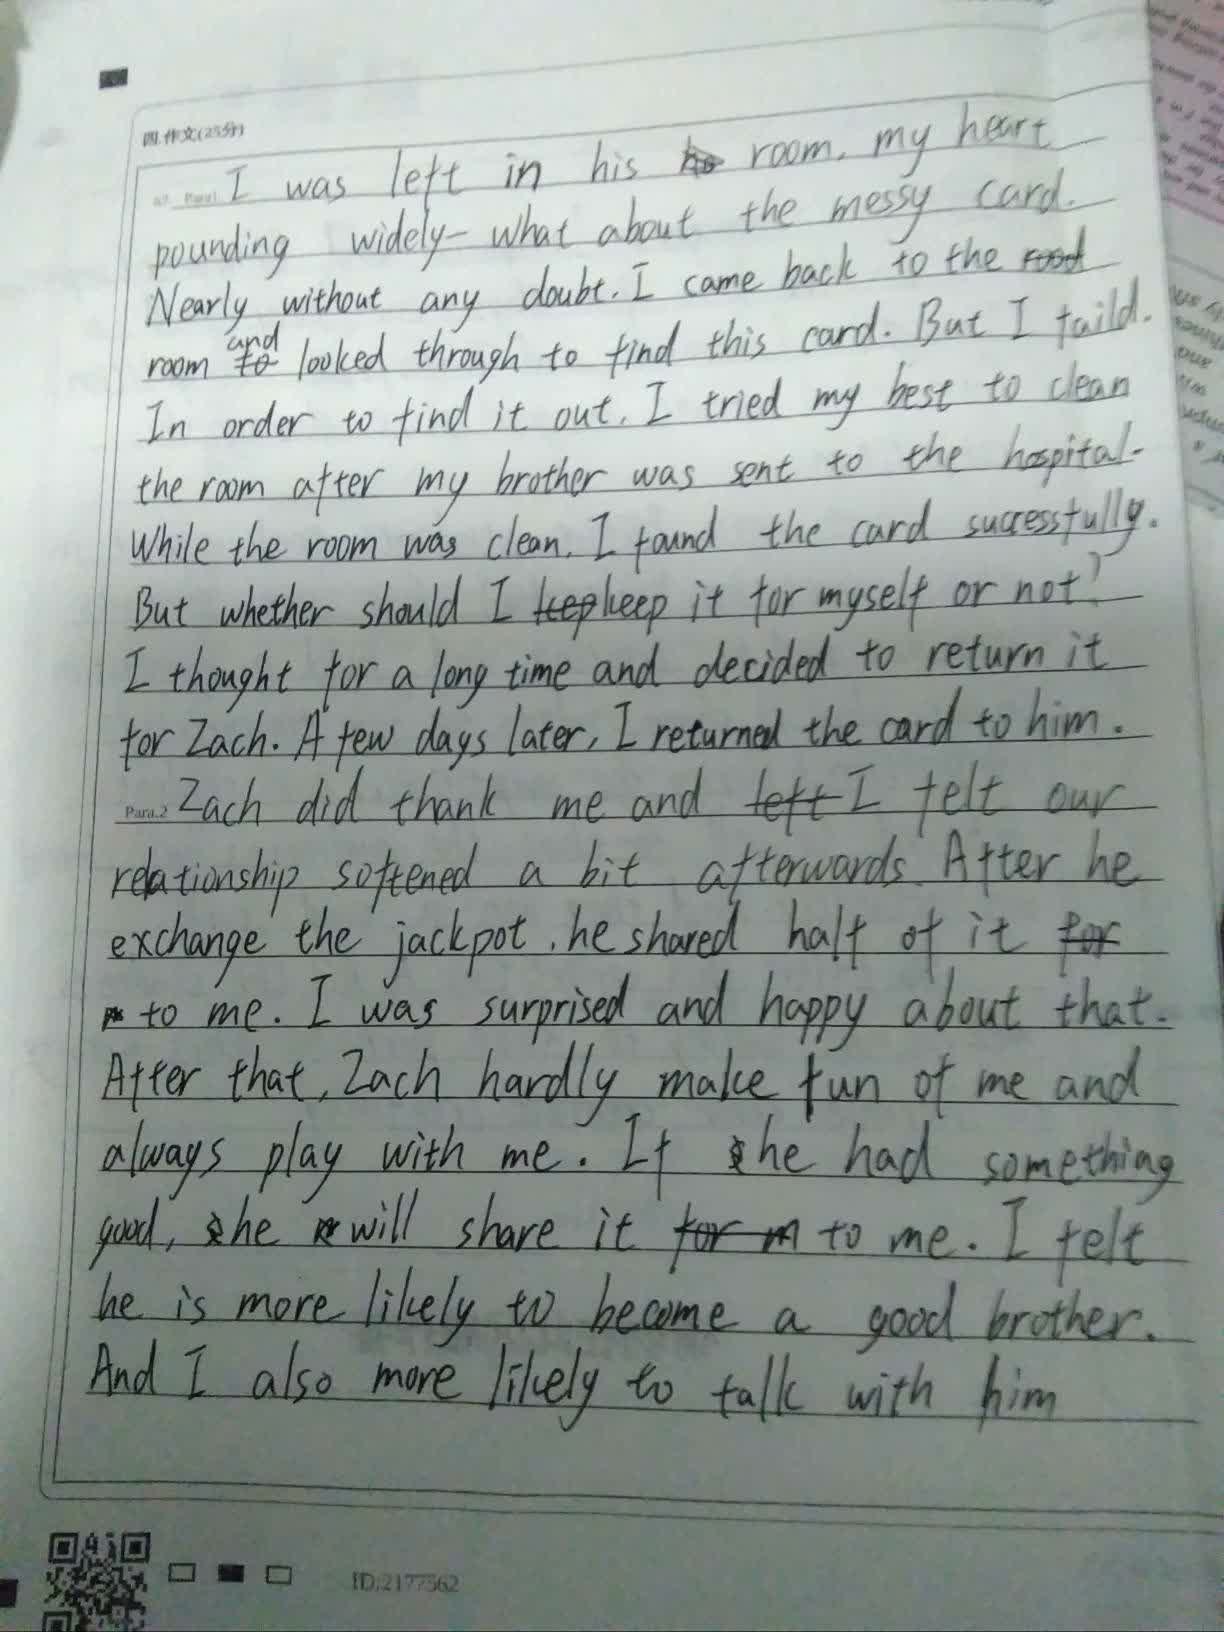 四.作文(25分)
Para1 I was left in his room, my heart
pounding widely- what about the messy card.
Nearly without any doubt, I came back to the
room and looked through to find this card. But I faild.
In order to find it out, I tried my best to clean
the room after my brother was sent to the hospital.
While the room was clean, I found the card successfully.
But whether should I keep it for myself or not?
I thought for a long time and decided to return it
for Zach. A few days later, I returned the card to him.
Para.2 Zach did thank me and I felt our
relationship softened a bit afterwards. After he
exchange the jackpot, he shared half of it
to me. I was surprised and happy about that.
After that, Zach hardly make fun of me and
always play with me. If he had something
good, he will share it to me. I felt
he is more likely to become a good brother.
And I also more likely to talk with him
ID:2177562